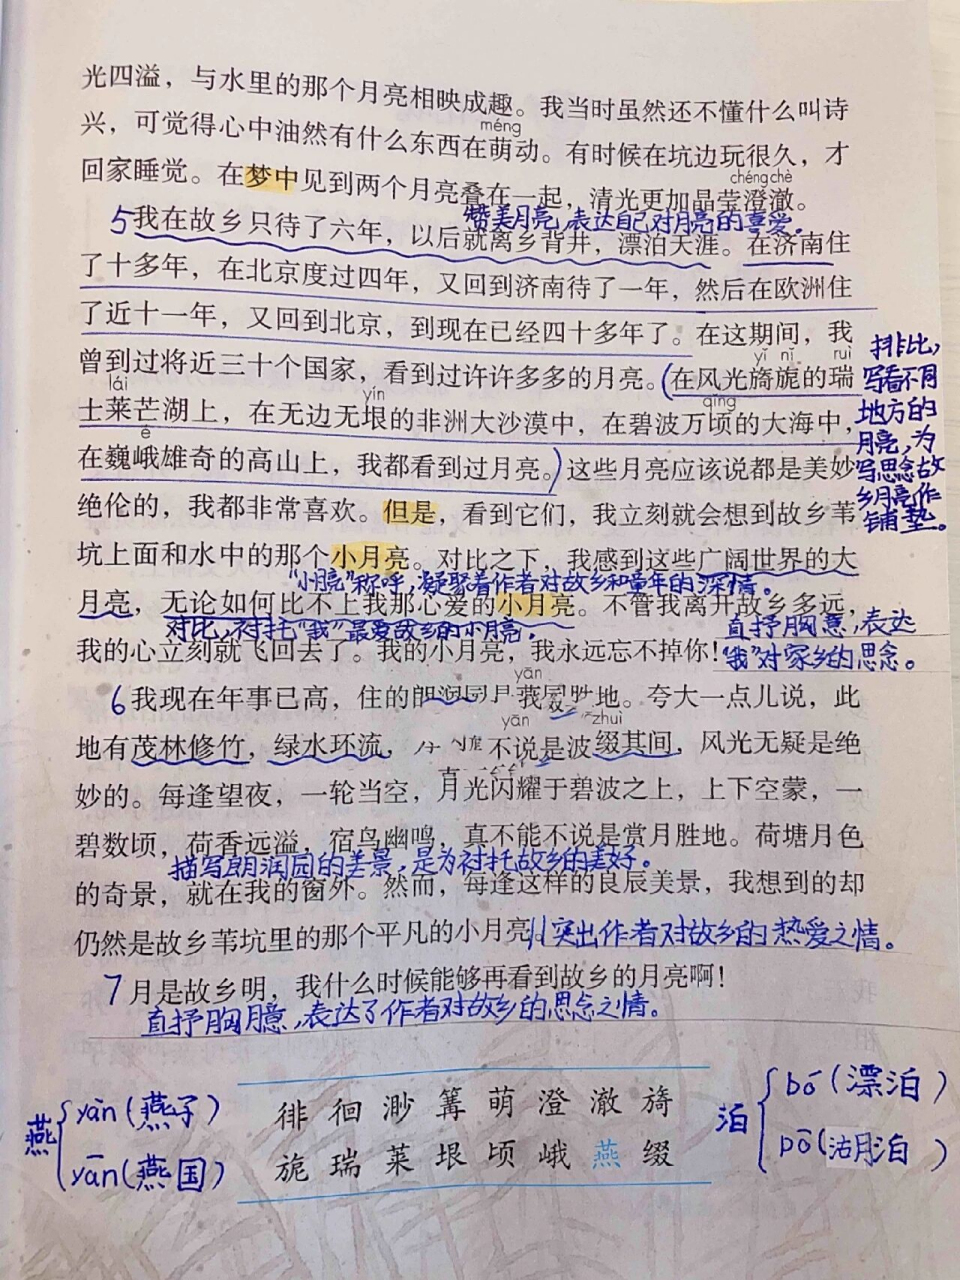 光四溢，与水里的那个月亮相映成趣。我当时虽然还不懂什么叫诗
méng
兴，可觉得心中油然有什么东西在萌动。有时候在坑边玩很久，才
回家睡觉。在梦中见到两个月亮叠在一起，清光更加晶莹澄澈。
chéng chè
赞美月亮，表达自己对月亮的喜爱。
5 我在故乡只待了六年，以后就离乡背井，漂泊天涯。在济南住
了十多年，在北京度过四年，又回到济南待了一年，然后在欧洲住
了近十一年，又回到北京，到现在已经四十多年了。在这期间，我
曾到过将近三十个国家，看到过许许多多的月亮。(在风光旖旎的瑞
yǐ nǐ ruì
lái yín qǐng
士莱芒湖上，在无边无垠的非洲大沙漠中，在碧波万顷的大海中，
é
在巍峨雄奇的高山上，我都看到过月亮。)这些月亮应该说都是美妙
排比，
写看不同
地方的
月亮，为
写思念故
乡月亮作
铺垫。
绝伦的，我都非常喜欢。但是，看到它们，我立刻就会想到故乡苇
坑上面和水中的那个小月亮。对比之下，我感到这些广阔世界的大
“小月亮”称呼，凝聚着作者对故乡和童年的深情。
月亮，无论如何比不上我那心爱的小月亮。不管我离开故乡多远，
对比，衬托“我”最爱故乡的小月亮。
我的心立刻就飞回去了。我的小月亮，我永远忘不掉你！
直抒胸意，表达
“我”对家乡的思念。
yān
6 我现在年事已高，住的 地。夸大一点儿说，此
yān zhuì
地有茂林修竹，绿水环流， 不说是波缀其间，风光无疑是绝
妙的。每逢望夜，一轮当空，月光闪耀于碧波之上，上下空蒙，一
碧数顷，荷香远溢，宿鸟幽鸣，真不能不说是赏月胜地。荷塘月色
描写朗润园的美景，是为衬托故乡的美好。
的奇景，就在我的窗外。然而，每逢这样的良辰美景，我想到的却
仍然是故乡苇坑里的那个平凡的小月亮 突出作者对故乡的热爱之情。
7 月是故乡明，我什么时候能够再看到故乡的月亮啊！
直抒胸意，表达了作者对故乡的思念之情。
燕 yàn(燕子)
yān(燕国)
徘 徊 渺 篝 萌 澄 澈 旖
旎 瑞 莱 垠 顷 峨 燕 缀
泊 bó(漂泊)
pō(湖泊)